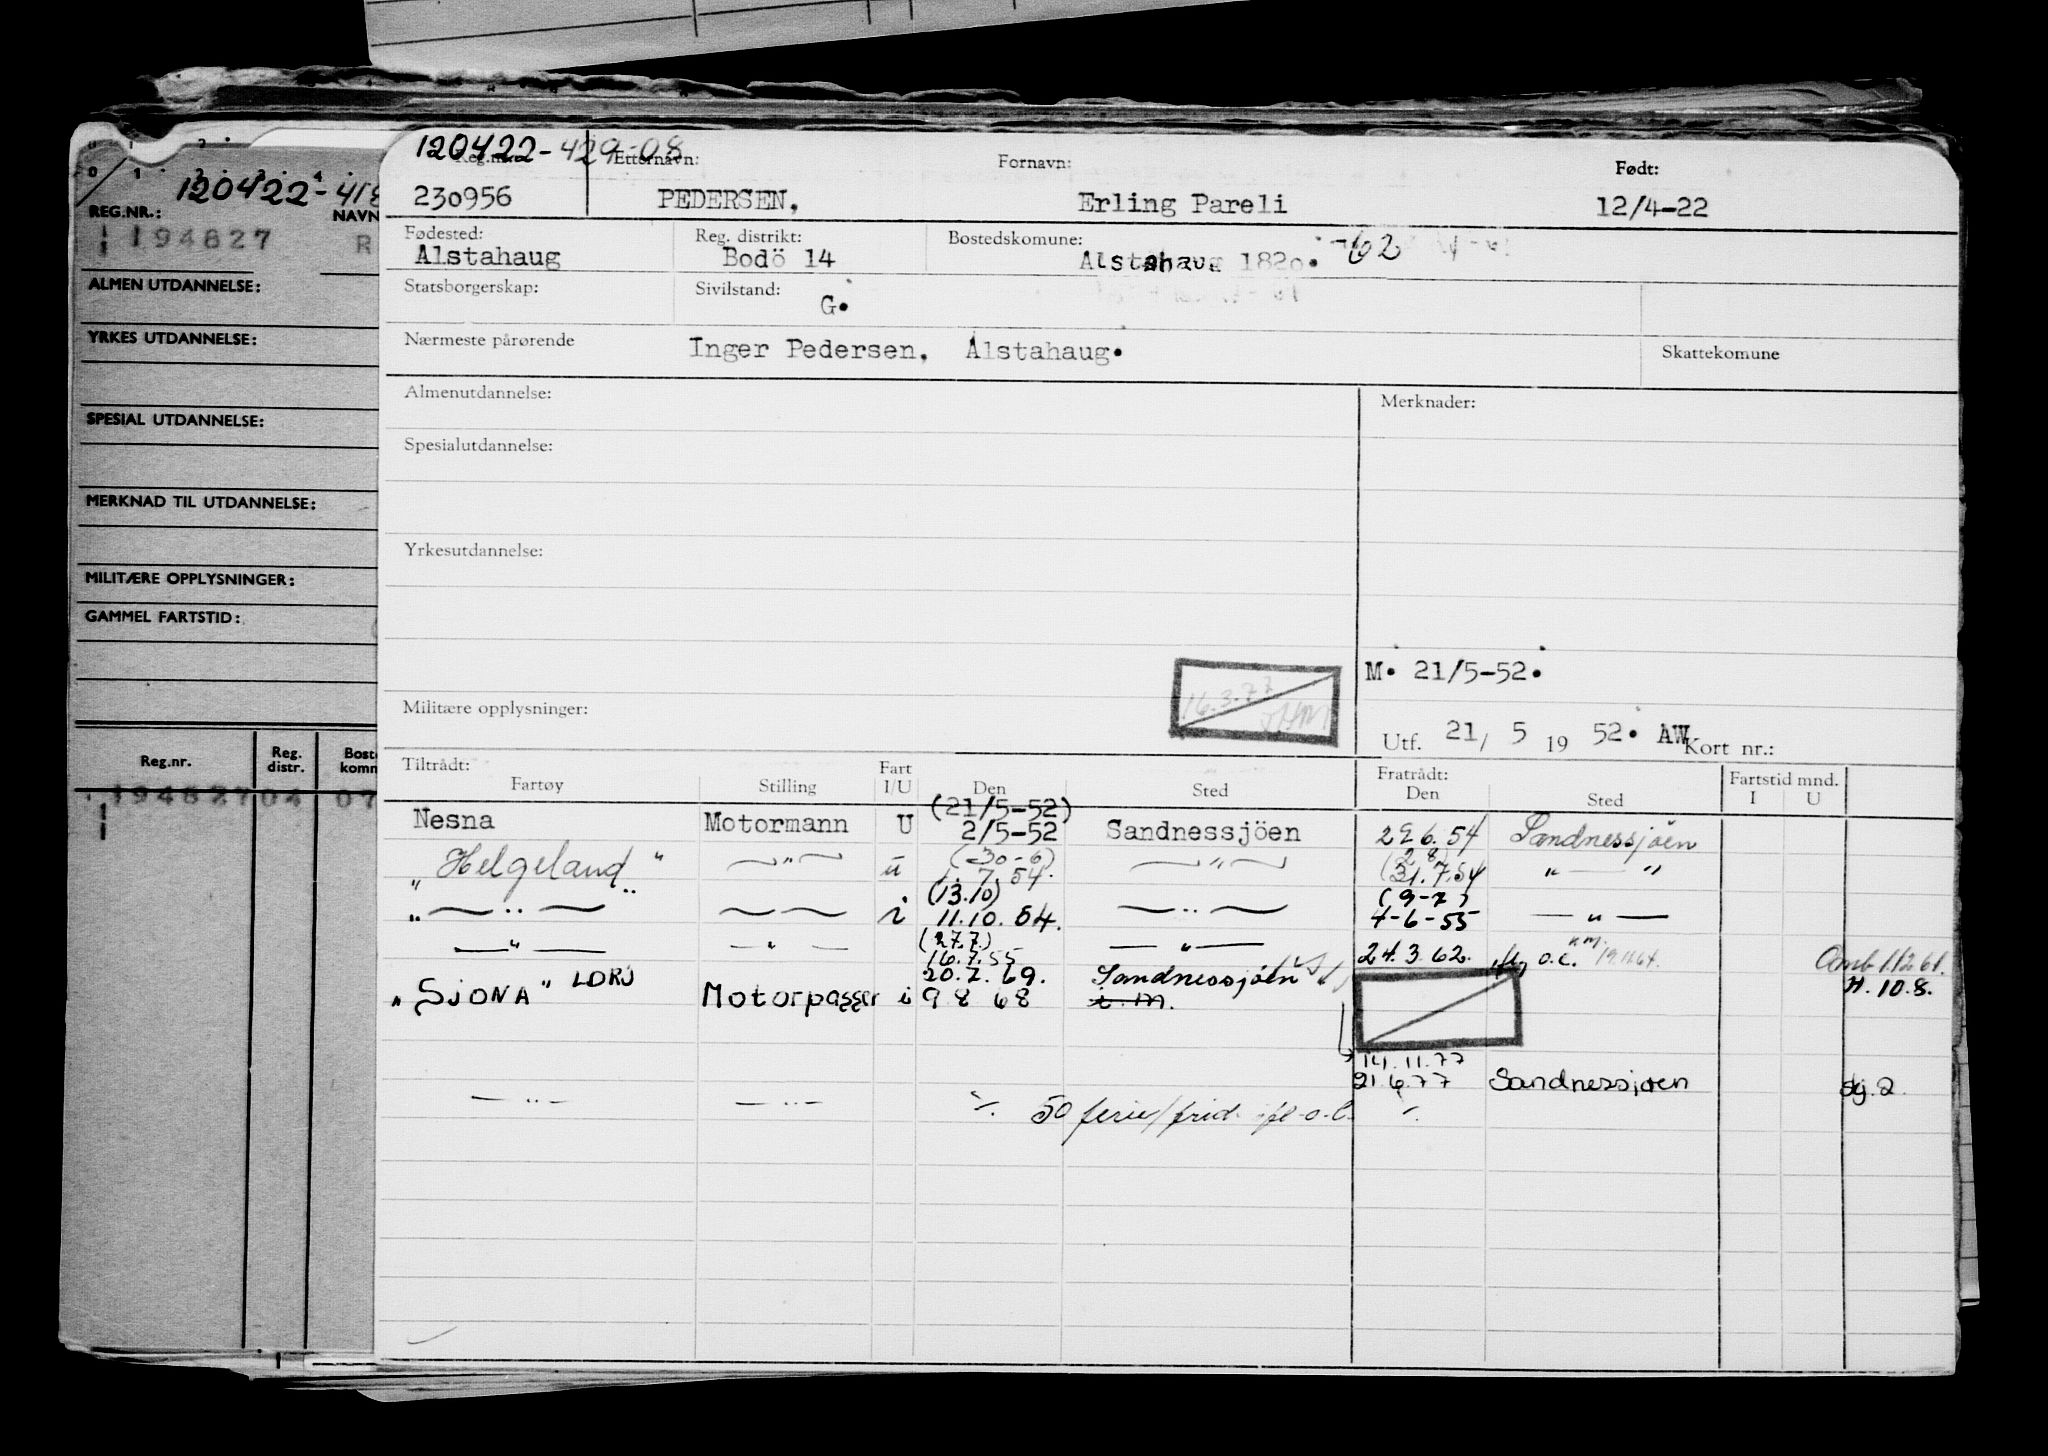 120422-429-08
Reg.nr. Etternavn: Fornavn: Født:
230956 PEDERSEN, Erling Pareli 12/4-22
Fødested: Reg. distrikt: Bostedskomune:
Alstahaug Bodö 14 Alstahaug 1820. -62
Statsborgerskap: Sivilstand:
G.
Nærmeste pårørende Inger Pedersen, Alstahaug. Skattekomune
Almenutdannelse: Merknader:
Spesialutdannelse:
Yrkesutdannelse:
M. 21/5-52.
16.3.77
Militære opplysninger:
Utf. 21/ 5 19 52. AW Kort nr.:
Tiltrådt: Fratrådt: Fartstid mnd.
Fartøy Stilling Fart I/U Den Sted Den Sted I U
(21/5-52)
Nesna Motormann U 2/5-52 Sandnessjöen 29.6.54 Sandnessjöen
(30-6) (2.8)
"Helgeland" —"— u 1.7.54. —"— 31.7.54 "—"
(13.10) (9-7)
"—"— — — i 11.10.54. —"— 4-6-55 —"—
(27.7.)
—"— —"— 16.7.55 —"— 24.3.62. o.c. 19.11.64. Omb 1.12.61.
20.7.69. Sandnessjöen
"SJONA" LDRJ Motorpasser i 9 8 68 t.m. H. 10.8.
14.11.77
21.6.77 Sandnessjøen sj. 2.
—"— —"— ·/. 50 ferie/frid. ·/.
120422-418
REG.NR.: NAVN
194827 R
ALMEN UTDANNELSE:
YRKES UTDANNELSE:
SPESIAL UTDANNELSE:
MERKNAD TIL UTDANNELSE:
MILITÆRE OPPLYSNINGER:
GAMMEL FARTSTID:
Reg.nr. Reg. distr. Boste komm
194827 04 07